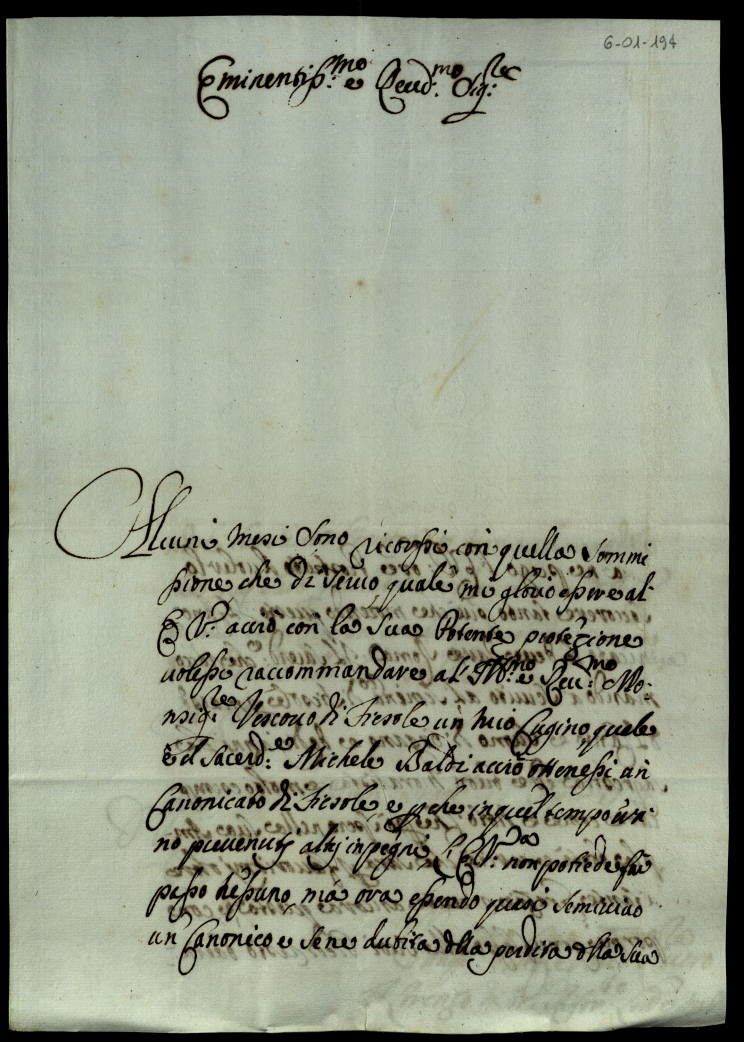 6-01-194
Eminentiss:mo e Reued:mo Sig:re
Alcuni mesi sono ricorssi con quella sommi
ssione che di seruo, quale mi glorio essere al
E V:a acciò con la sua Potente protezione
uolessi raccommandare al Ill:mo e Reu:mo Mo-
nsig:re Vescouo di Fiesole un mio Cugino, quale
è il Sacerd:e Michele Baldi acciò ottenessi un
Canonicato di Fiesole, e perche in quel tempo ui era
no preuenuti altri inpegni, l'E V:a non potiede far
passo nessuno, mà ora essendo quasi semiuiuo
un Canonico e se ne dubita della perdita della sua